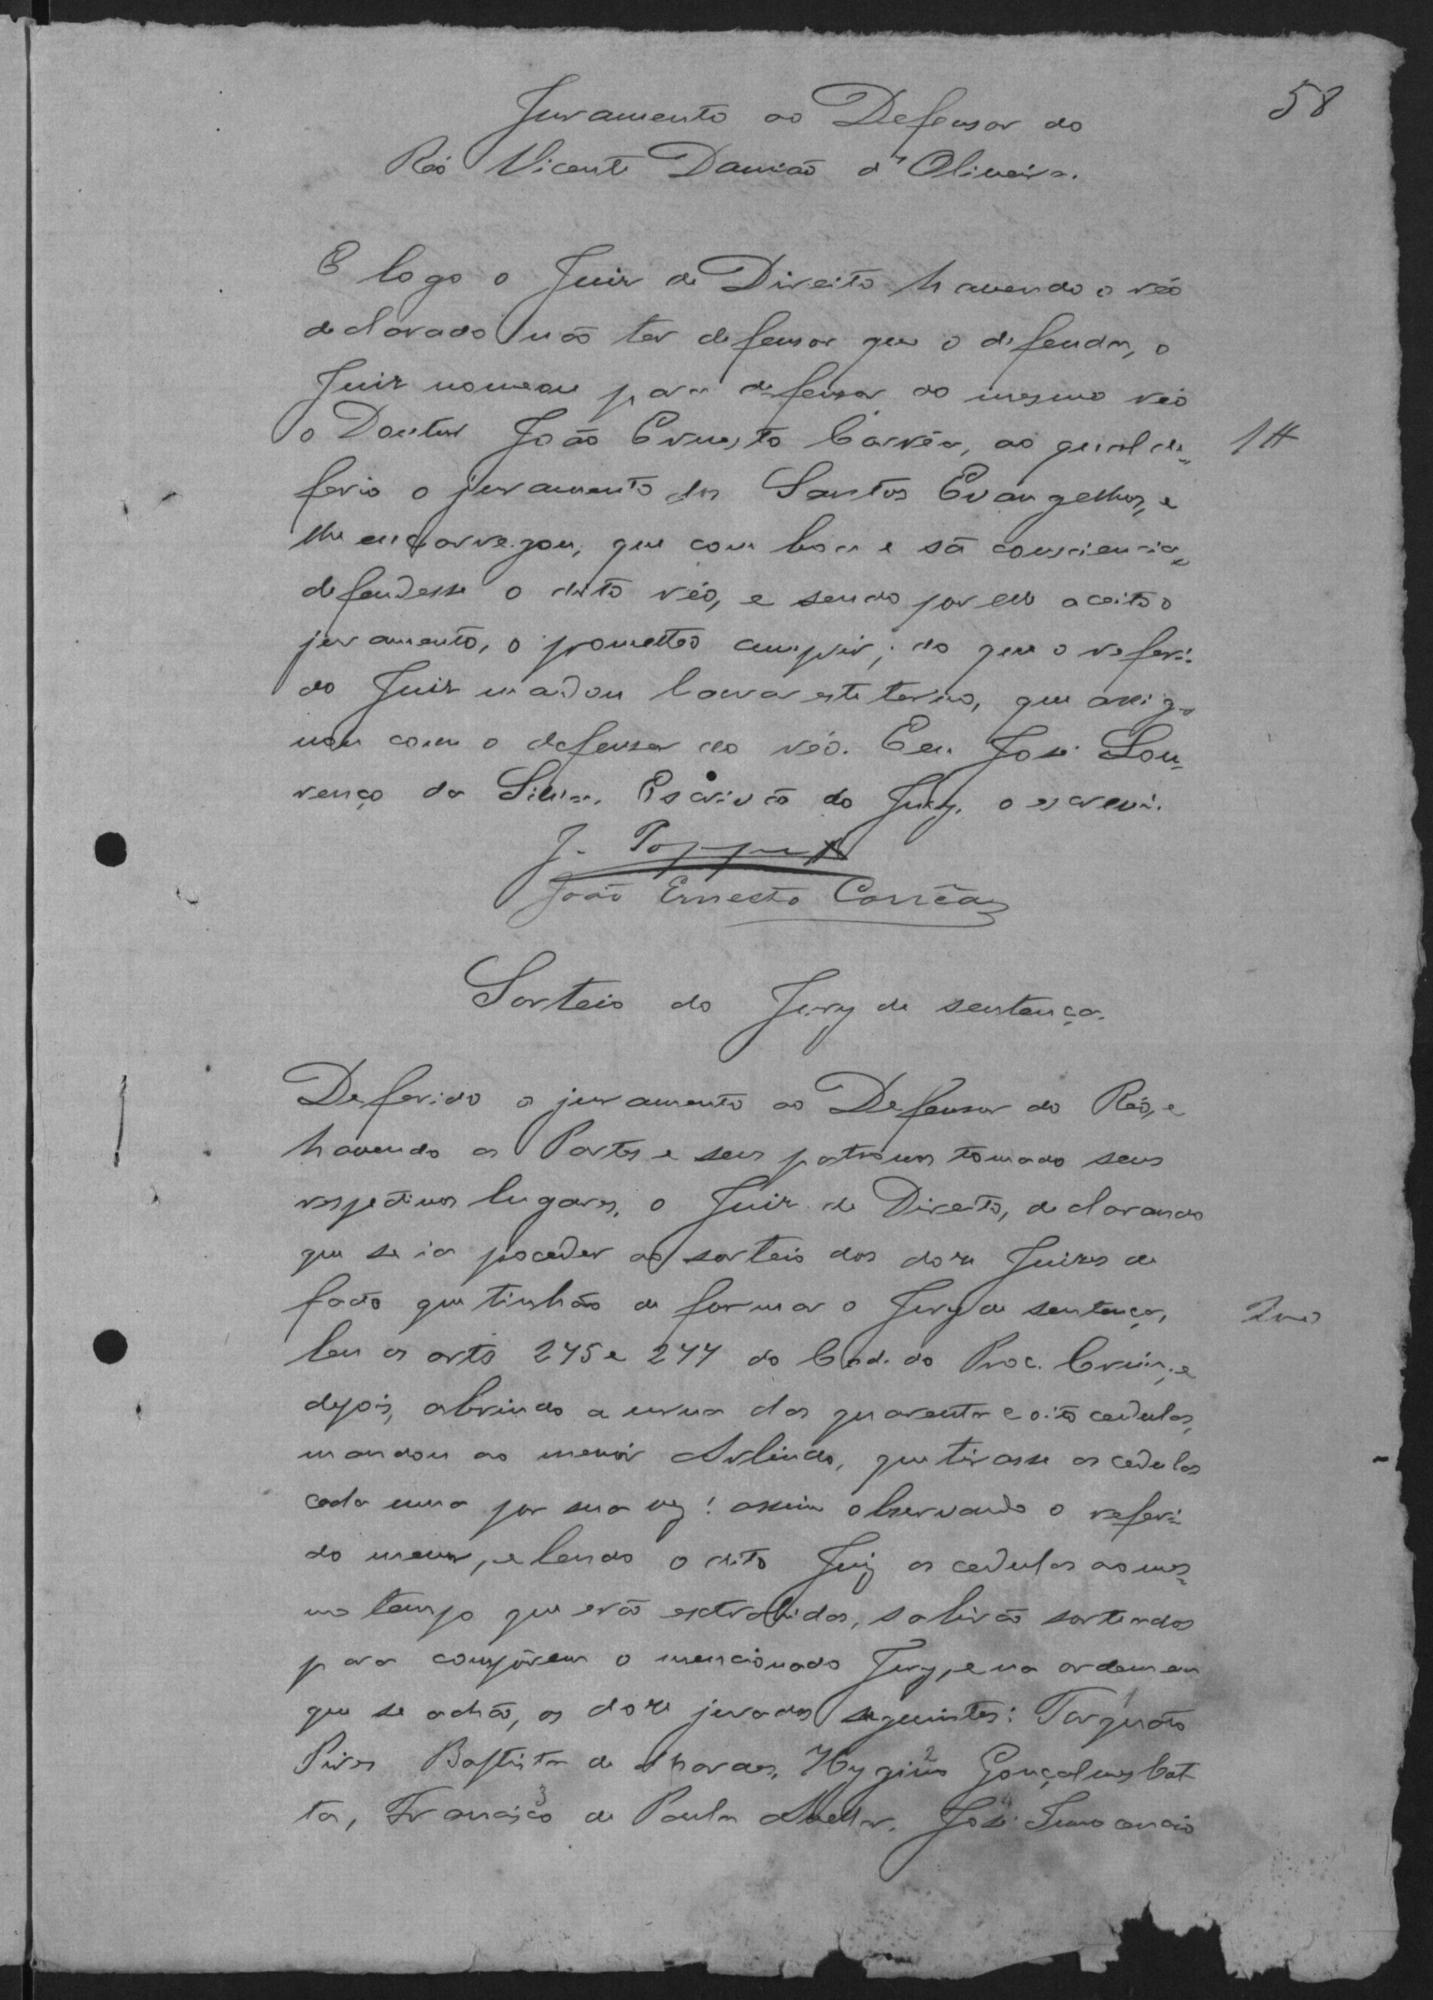 58
Juramento ao Defensor do
Réo Vicente Damião d'Oliveira.
E logo o Juiz de Direito havendo o réo
declarado não ter defensor que o defenda, o
Juiz nomeou para defensor ao mesmo réo
o Doutor João Ernesto Corrêa, ao qual de-
ferio o juramento dos Santos Evangelhos, e
lhe encarregou, que com boa e sã consciencia
defendesse o dito réo, e sendo por elle aceito o
juramento, o prometteo cumprir; do que o referi-
do Juiz madou lavrar este termo, que assig-
nou com o defensor do réo. Eu José Lou-
renço da Silva. Escrivão do Jury, o escrevi.
J.
João Ernesto Corrêa
Sorteio do Jury de sentença.
Deferido o juramento ao Defensor do Réo, e
havendo as Partes e seus patronos tomado seus
respectivos lugares, o Juiz de Direito, declarando
que se ia proceder ao sorteio dos doze Juizes de
facto que tinhão de formar o Jury de sentença,
leu os arts 275 e 277 do Cod. do Proc. Crim., e
depois, abrindo a urna das quarenta e oito cedulas,
mandou ao menor Arlindo, que tirasse as cedulas
cada uma por sua vez: assim observando o referi-
do menor, e lendo o dito Juiz as cedulas ao mes-
mo tempo que erão extrahidas, sahirão sorteados
para compôrem o mencionado Jury, e na ordem em
que se achão, os doze jurados seguintes: Torquato
Pires Baptista de Moraes, Hygino 2 Gonçalves Cot-
ta, Francisco 3 de Paula José 4